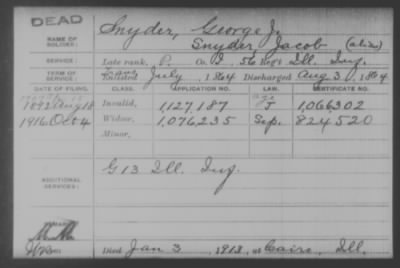 DEAD
NAME OF SOLDIER: Snyder, George J.
Snyder, Jacob (alias)
SERVICE: Late rank, P. Co. I, 56 Reg't Ill. Inf.
TERM OF SERVICE: Enlisted July, 1864 Discharged Aug 3, 1864
DATE OF FILING. CLASS. APPLICATION NO. LAW. CERTIFICATE NO.
1892 Aug 18 Invalid, 1,127,187 J 1,066,302
1916 Oct 4 Widow, 1,076,235 Sep. 824520
Minor,
ADDITIONAL SERVICES: G 13 Ill. Inf.
REMARKS:
Died Jan 3, 1913, at Cairo, Ill.